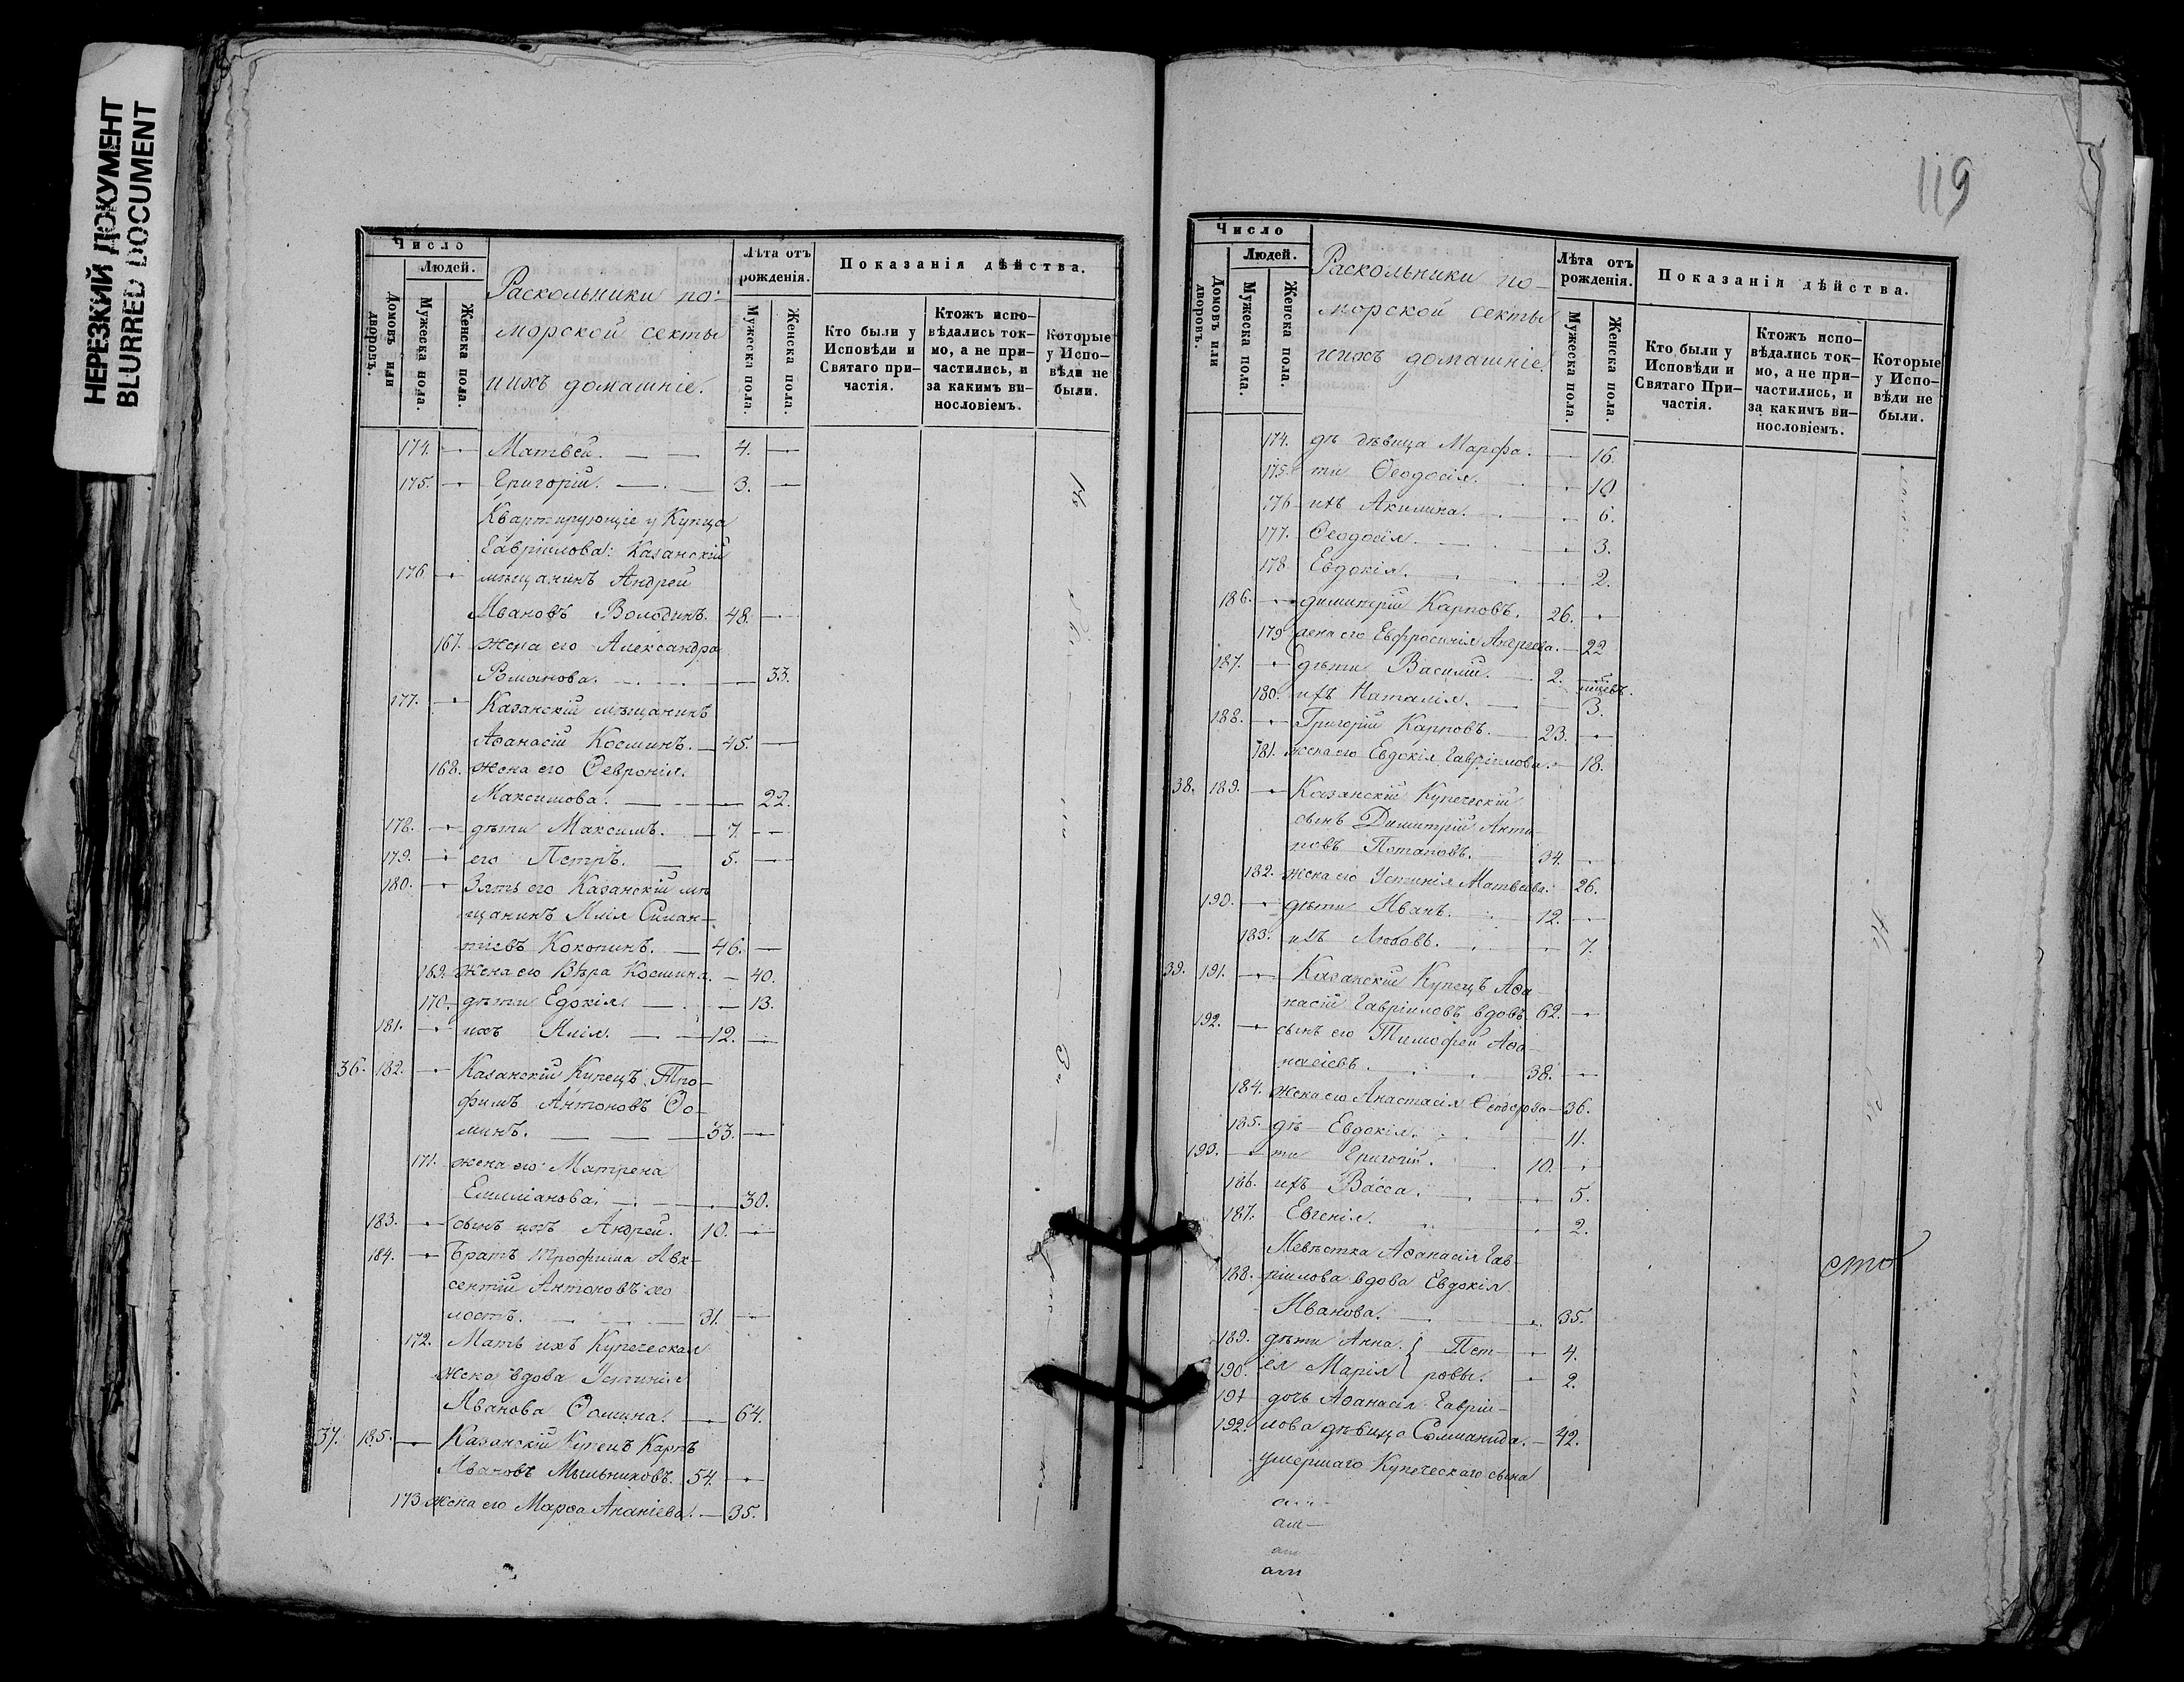 НЕРЕЗКИЙ ДОКУМЕНТ
BLURRED DOCUMENT
Число
Людей.
Домовъ или дворовъ.
Мужеска пола.
Женска пола.
Раскольники по-
морской секты
и ихъ домашніе.
Лѣта отъ рожденія.
Мужеска пола.
Женска пола.
Показанія дѣйства.
Кто были у Исповѣди и Святаго при-частія.
Ктожъ испо-вѣдались ток-мо, а не при-частились, и за какимъ ви-нословіемъ.
Которые у Испо-вѣди не были.
174. Матвей. 4.
175. Григорій. 3.
Квартирующіе у Купца
Гавріилова: Казанскій
176 мѣщанинъ Андрей
Ивановъ Володинъ. 48.
167. жена его Александра
Романова. 33.
177. Казанскій мѣщанинъ
Аѳанасій Косминъ. 45.
168. жена его Ѳевронія
Максимова. 22.
178. дѣти Максимъ. 7.
179. его Петръ. 5.
180. Зять его Казанскій мѣ
щанинъ Илія Силан-
тіевъ Кокопинъ. 46.
169. жена его Вѣра Космина. 40.
170. дѣти Едокія. 13.
181. ихъ Илія. 12.
36. 182. Казанскій Купецъ Тро-
фимъ Антоновъ Ѳо-
минъ. 33.
171. жена его Матрена
Емиліанова. 30.
183. сынъ ихъ Андрей. 10.
184. Братъ Трофима Авк-
сентій Антоновъ хо
лостъ. 31.
172. Мать ихъ Купеческая
жена вдова Устинія
Иванова Ѳомина. 64.
37. 185. Казанскій Купецъ Карпъ
Ивановъ Мыльниковъ. 54.
173 жена его Марѳа Ананіева. 35.
119
Число
Людей.
Домовъ или дворовъ.
Мужеска пола.
Женска пола.
Раскольники по-
морской секты
и ихъ домашніе.
Лѣта отъ рожденія.
Мужеска пола.
Женска пола.
Показанія дѣйства.
Кто были у Исповѣди и Святаго При-частія.
Ктожъ испо-вѣдались ток-мо, а не при-частились, и за какимъ ви-нословіемъ.
Которые у Испо-вѣди не были.
174. дѣ дѣвица Марфа. 16.
175. ти Ѳеодосія. 10
176 ихъ Акилина. 6.
177. Ѳеодосія. 3.
178 Евдокія. 2.
186. Димитрій Карповъ. 26.
179 жена его Евфросинія Андреева. 22
187. дѣти Василій. 2.
180. ихъ Наталія. 3.
188. Григорій Карповъ. 23.
181. жена его Евдокія Гавріилова. 18.
38. 189. Казанскій Купеческій
сынъ Димитрій Анти-
повъ Потаповъ. 34.
182. жена его Устинія Матвеева. 26.
190. дѣти Иванъ. 12.
183. ихъ Любовь. 7.
39. 191. Казанскій Купецъ Аѳа
насій Гавріиловъ вдовъ 62.
192. сынъ его Тимофей Аѳа-
насіевъ. 38.
184. жена его Анастасія Ѳеодорова 36.
185. дѣ Евдокія. 11.
193. ти Григорій. 10.
186. ихъ Васса. 5.
187. Евгенія. 2.
Невѣстка Аѳанасія Гав-
188. ріилова вдова Евдокія
Иванова. 35.
189. дѣти Анна. } Пет-
4.
190. ея Марія } ровы. 2.
191 дочь Аѳанасія Гавріи-
192. лова дѣвица Соломанида. 42.
умершаго Купеческаго сына